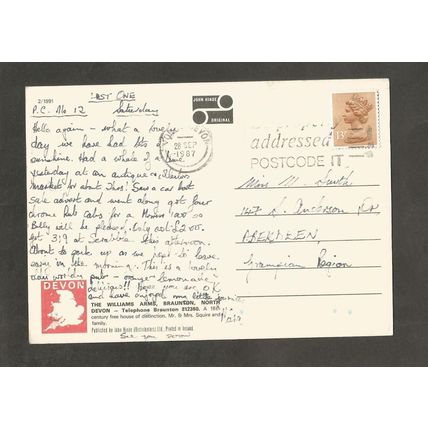 2/1991
LAST ONE
P.C. No 12 Saturday
Hello again – what a lovely
day we have had lots of
sunshine. Had a whale of a time
yesterday at an antique &
market for about 3hrs! Saw a car boot
sale advert and went along got four
chrome hub cabs for a Morris 1100 so
Billy will be pleased, only cost £2.00.
Got 319 at Scrabble this afternoon.
About to pack up as we need to leave
early in the morning. This is a lovely
olde worlde pub – orange lemonade
delicious!! Hope you are O.K
and have enjoyed my little
See you soon
JOHN HINDE
ORIGINAL
DEVON
28 SEP
1987
addressed
POSTCODE IT
Miss M. Smith
147 S. Anderson Dr
ABERDEEN,
Grampian Region
DEVON
THE WILLIAMS ARMS, BRAUNTON, NORTH
DEVON — Telephone Braunton 812360. A 16th
century free house of distinction. Mr. & Mrs. Squire and
family.
Published by John Hinde (Distributors) Ltd. Printed in Ireland.